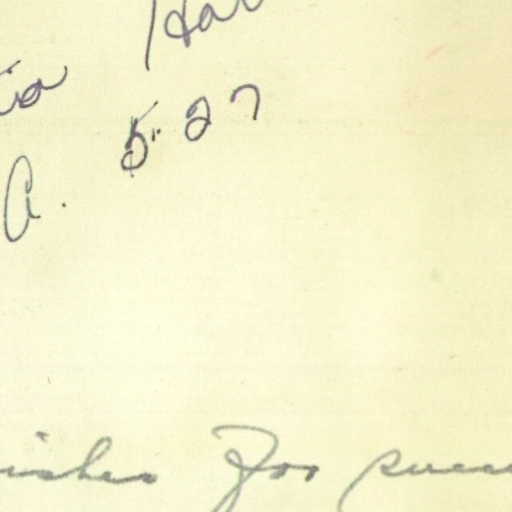 ia Har
A. 5-27
ishes for succ